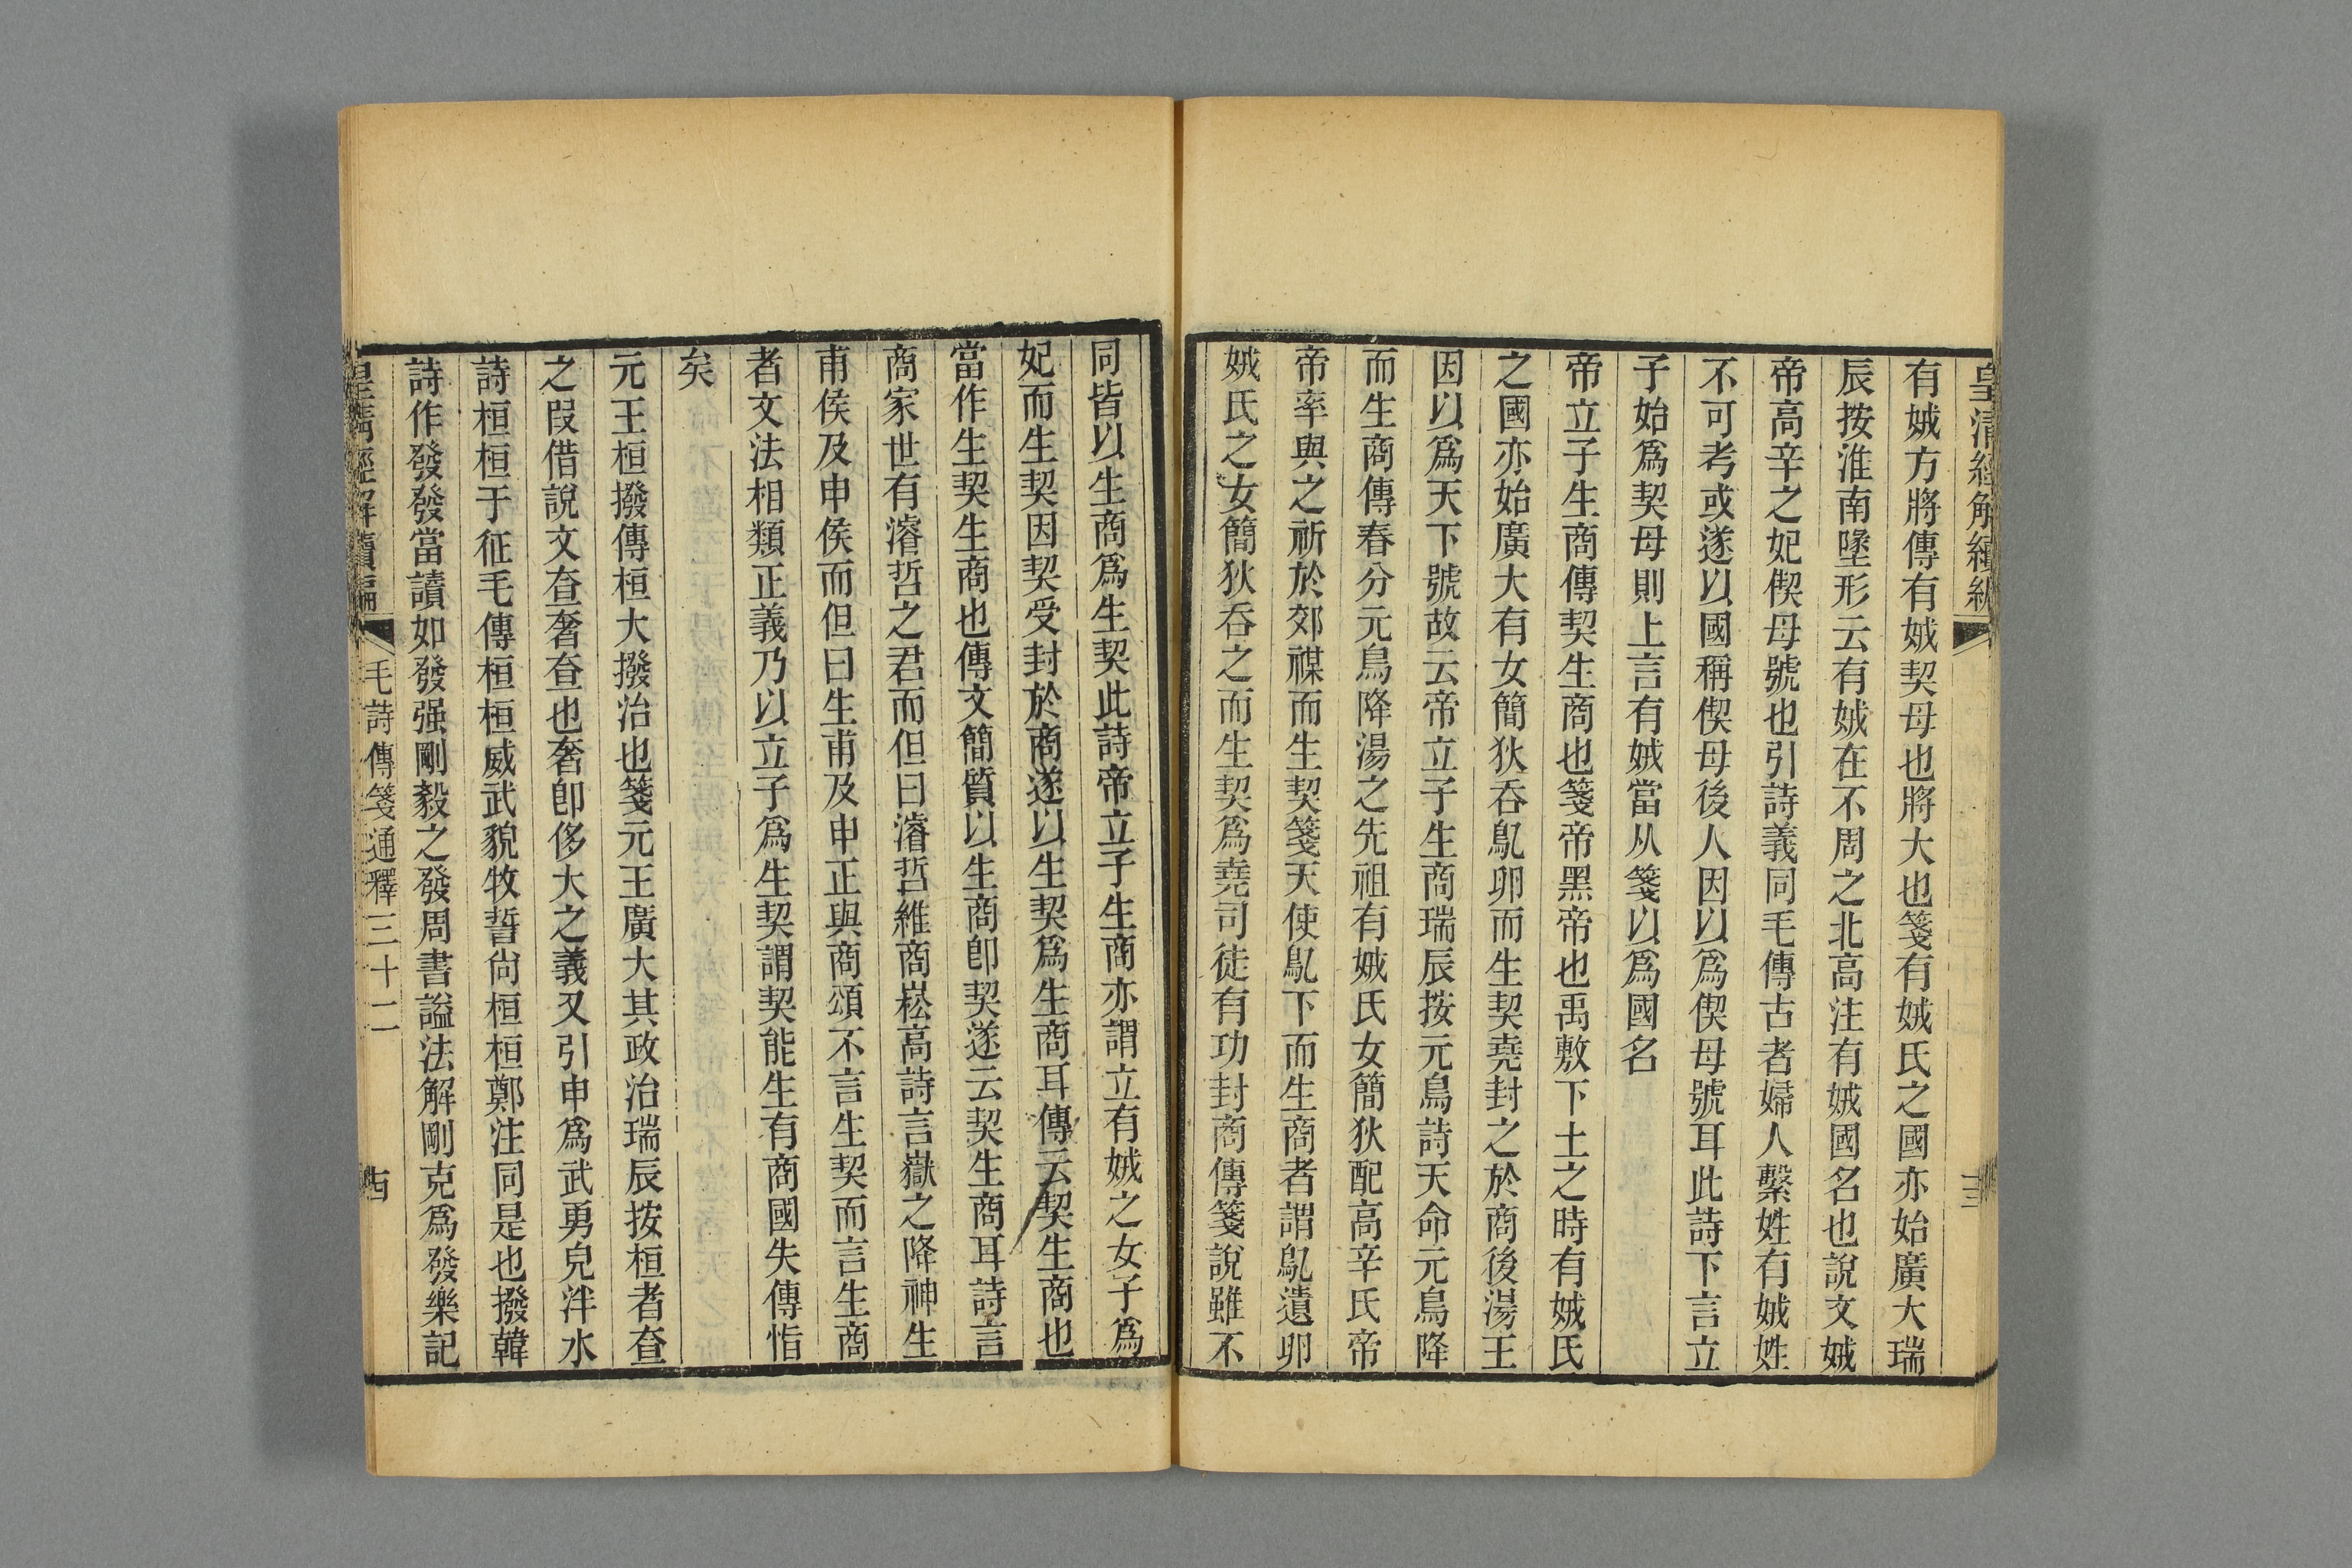 皇清經解續編
十三
有娀方將傳有娀契母也將大也箋有娀氏之國亦始廣大瑞
辰按淮南墬形云有娀在不周之北高注有娀國名也說文娀
帝高辛之妃偰母號也引詩義同毛傳古者婦人繫姓有娀姓
不可考或遂以國稱偰母後人因以爲偰母號耳此詩下言立
子始爲契母則上言有娀當从箋以爲國名
帝立子生商傳契生商也箋帝黑帝也禹敷下土之時有娀氏
之國亦始廣大有女簡狄吞鳦卵而生契堯封之於商後湯王
因以爲天下號故云帝立子生商瑞辰按元鳥詩天命元鳥降
而生商傳春分元鳥降湯之先祖有娀氏女簡狄配高辛氏帝
帝率與之祈於郊禖而生契箋天使鳦下而生商者謂鳦遺卵
娀氏之女簡狄吞之而生契爲堯司徒有功封商傳箋說雖不
同皆以生商爲生契此詩帝立子生商亦謂立有娀之女子爲
妃而生契因契受封於商遂以生契爲生商耳傳云契生商也
當作生契生商也傳文簡質以生商卽契遂云契生商耳詩言
商家世有濬哲之君而但曰濬哲維商崧高詩言嶽之降神生
甫侯及申侯而但曰生甫及申正與商頌不言生契而言生商
者文法相類正義乃以立子爲生契謂契能生有商國失傳恉
矣
元王桓撥傳桓大撥治也箋元王廣大其政治瑞辰按桓者奆
之叚借說文奆奢奆也奢卽侈大之義又引申爲武勇皃泮水
詩桓桓于征毛傳桓桓威武貌牧誓尙桓桓鄭注同是也撥韓
詩作發發當讀如發强剛毅之發周書謚法解剛克爲發樂記
皇清經解續編
毛詩傳箋通釋三十二
古